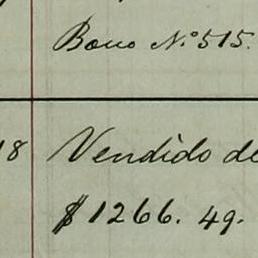 Bono N.º 515.
18 Vendido de
$1266.49.